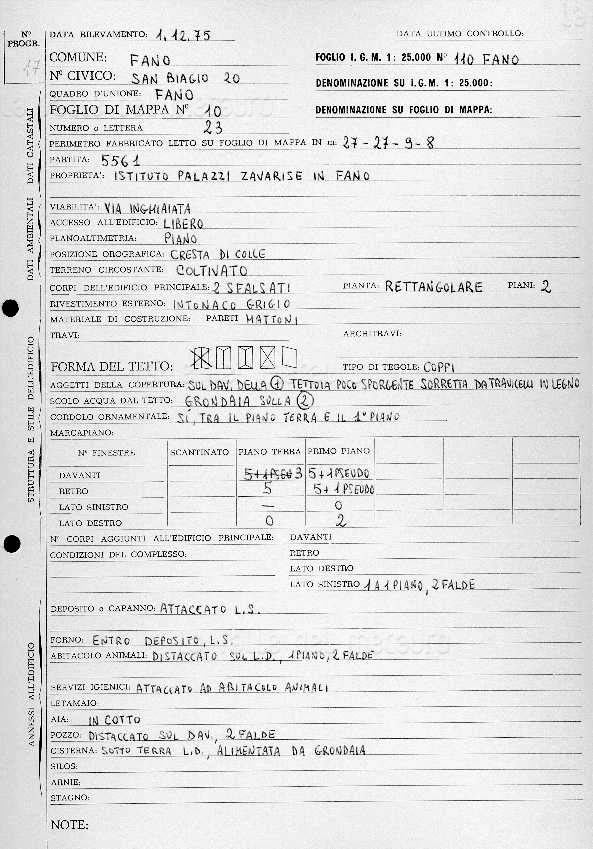 N° PROGR. 17
DATA RILEVAMENTO: 1.12.75 DATA ULTIMO CONTROLLO:
COMUNE: FANO FOGLIO I. G. M. 1: 25.000 N° 110 FANO
N° CIVICO: SAN BIAGIO 20 DENOMINAZIONE SU I.G.M. 1: 25.000:
QUADRO D'UNIONE: FANO
FOGLIO DI MAPPA N° 10 DENOMINAZIONE SU FOGLIO DI MAPPA:
NUMERO o LETTERA 23
PERIMETRO FABBRICATO LETTO SU FOGLIO DI MAPPA IN m. 27-27-9-8
PARTITA: 5561
PROPRIETA': ISTITUTO PALAZZI ZAVARISE IN FANO
DATI CATASTALI
VIABILITA': VIA INGHIAIATA
ACCESSO ALL'EDIFICIO: LIBERO
PLANOALTIMETRIA: PIANO
POSIZIONE OROGRAFICA: CRESTA DI COLLE
TERRENO CIRCOSTANTE: COLTIVATO
DATI AMBIENTALI
CORPI DELL'EDIFICIO PRINCIPALE: 2 SFALSATI PIANTA: RETTANGOLARE PIANI: 2
RIVESTIMENTO ESTERNO: INTONACO GRIGIO
MATERIALE DI COSTRUZIONE: PARETI MATTONI
TRAVI: ARCHITRAVI:
FORMA DEL TETTO: TIPO DI TEGOLE: COPPI
AGGETTI DELLA COPERTURA: SUL DAV. DELLA (1) TETTOIA POCO SPORGENTE SORRETTA DA TRAVICELLI IN LEGNO
SCOLO ACQUA DAL TETTO: GRONDAIA SULLA (2)
CORDOLO ORNAMENTALE: SÍ, TRA IL PIANO TERRA E IL 1° PIANO
MARCAPIANO:
STRUTTURA E STILE DELL'EDIFICIO
N° FINESTRE SCANTINATO PIANO TERRA PRIMO PIANO
DAVANTI 5+1PSEU 3 5+1PSEUDO
RETRO 5 5+1PSEUDO
LATO SINISTRO — 0
LATO DESTRO 0 2
N° CORPI AGGIUNTI ALL'EDIFICIO PRINCIPALE: DAVANTI
CONDIZIONI DEL COMPLESSO: RETRO
LATO DESTRO
LATO SINISTRO 1 A 1 PIANO, 2 FALDE
DEPOSITO o CAPANNO: ATTACCATO L.S.
FORNO: ENTRO DEPOSITO, L.S.
ABITACOLO ANIMALI: DISTACCATO SUL L.D., 1 PIANO, 2 FALDE
SERVIZI IGIENICI: ATTACCATO AD ABITACOLO ANIMALI
LETAMAIO
AIA: IN COTTO
POZZO: DISTACCATO SUL DAV., 2 FALDE
CISTERNA: SOTTO TERRA L.D., ALIMENTATA DA GRONDAIA
SILOS:
ARNIE:
STAGNO:
ANNESSI ALL'EDIFICIO
NOTE: